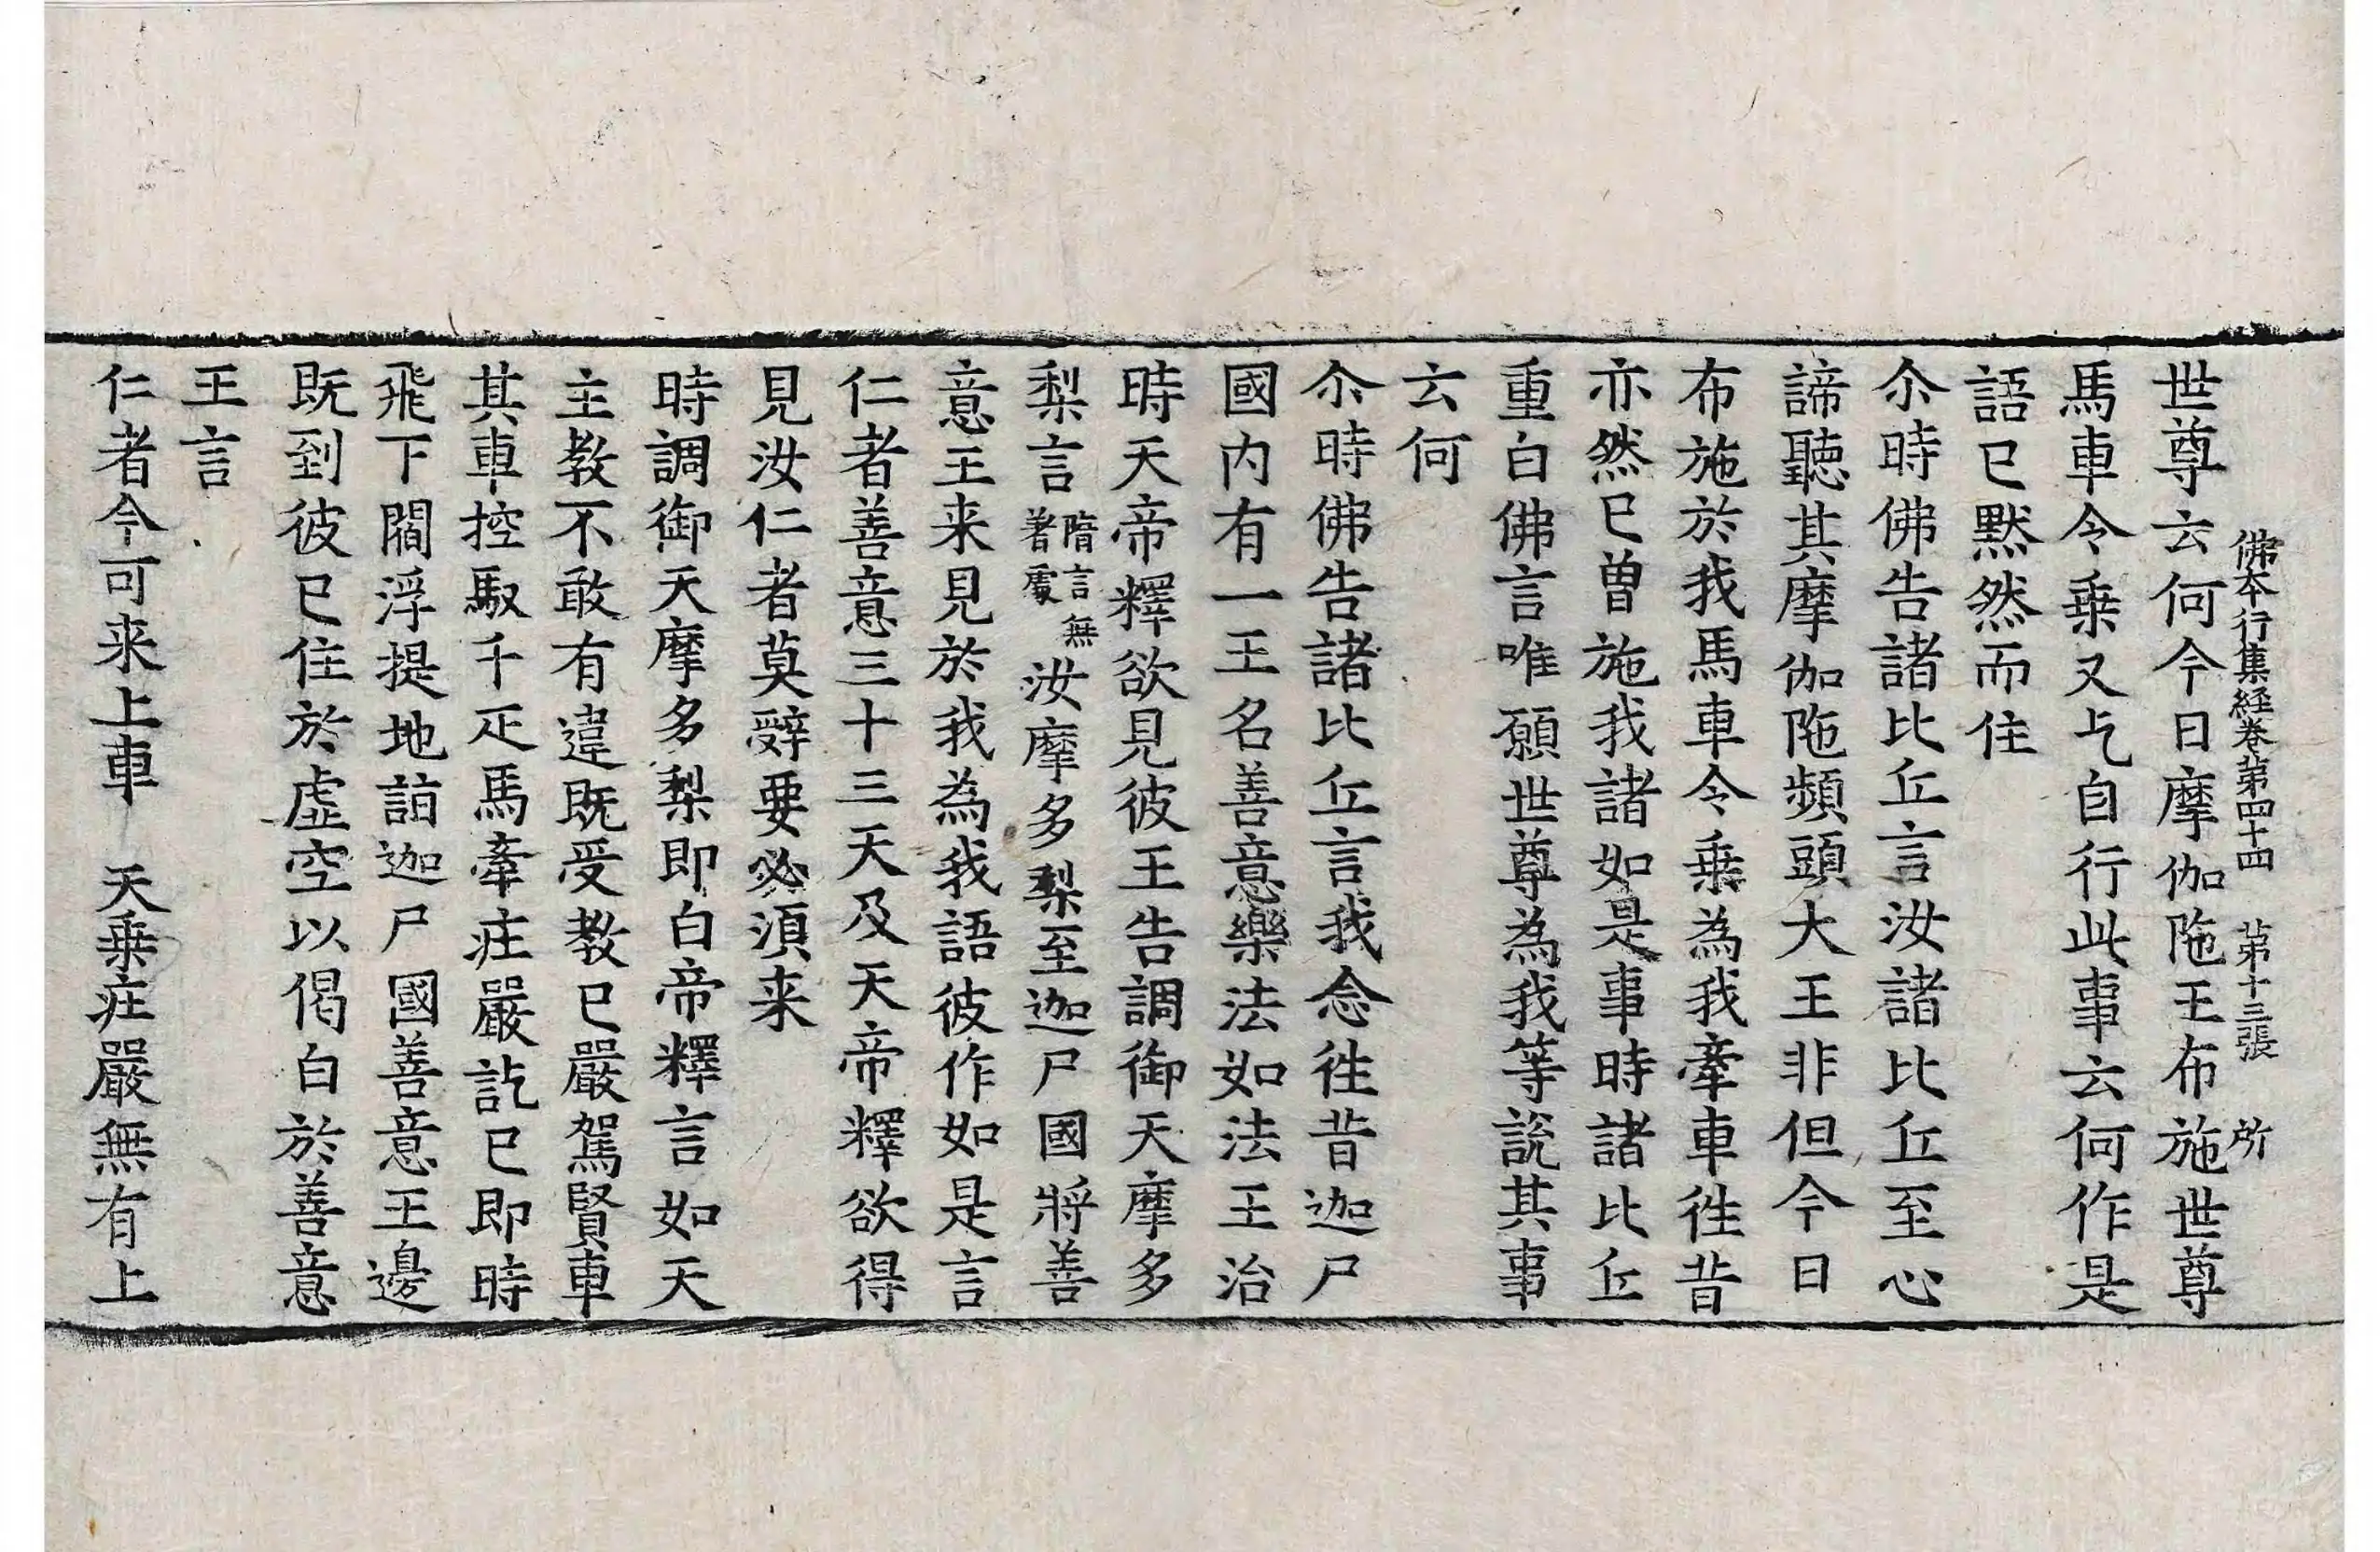 佛本行集經卷苐四十四 苐十三張 所
世尊云何今日摩伽陁王布施世尊
馬車令乗又乞自行此事云何作是
語已黙然而住
尒時佛告諸比丘言汝諸比丘至心
諦聽其摩伽陁頻頭大王非但今日
布施於我馬車令乗為我牽車徃昔
亦然已曽施我諸如是事時諸比丘
重白佛言唯願世尊為我等説其事
云何
尒時佛告諸比丘言我念徃昔迦尸
國内有一王名善意樂法如法王治
時天帝釋欲見彼王告調御天摩多
梨言隋言無著處汝摩多梨至迦尸國將善
意王来見於我為我語彼作如是言
仁者善意三十三天及天帝釋欲得
見汝仁者莫辤要必須来
時調御天摩多梨即白帝釋言如天
主教不敢有違既受教已嚴駕賢車
其車控馭千疋馬牽庄嚴訖已即時
飛下閻浮提地詣迦尸國善意王邊
既到彼已住於虛空以偈白於善意
王言
仁者今可来上車 天乗庄嚴無有上